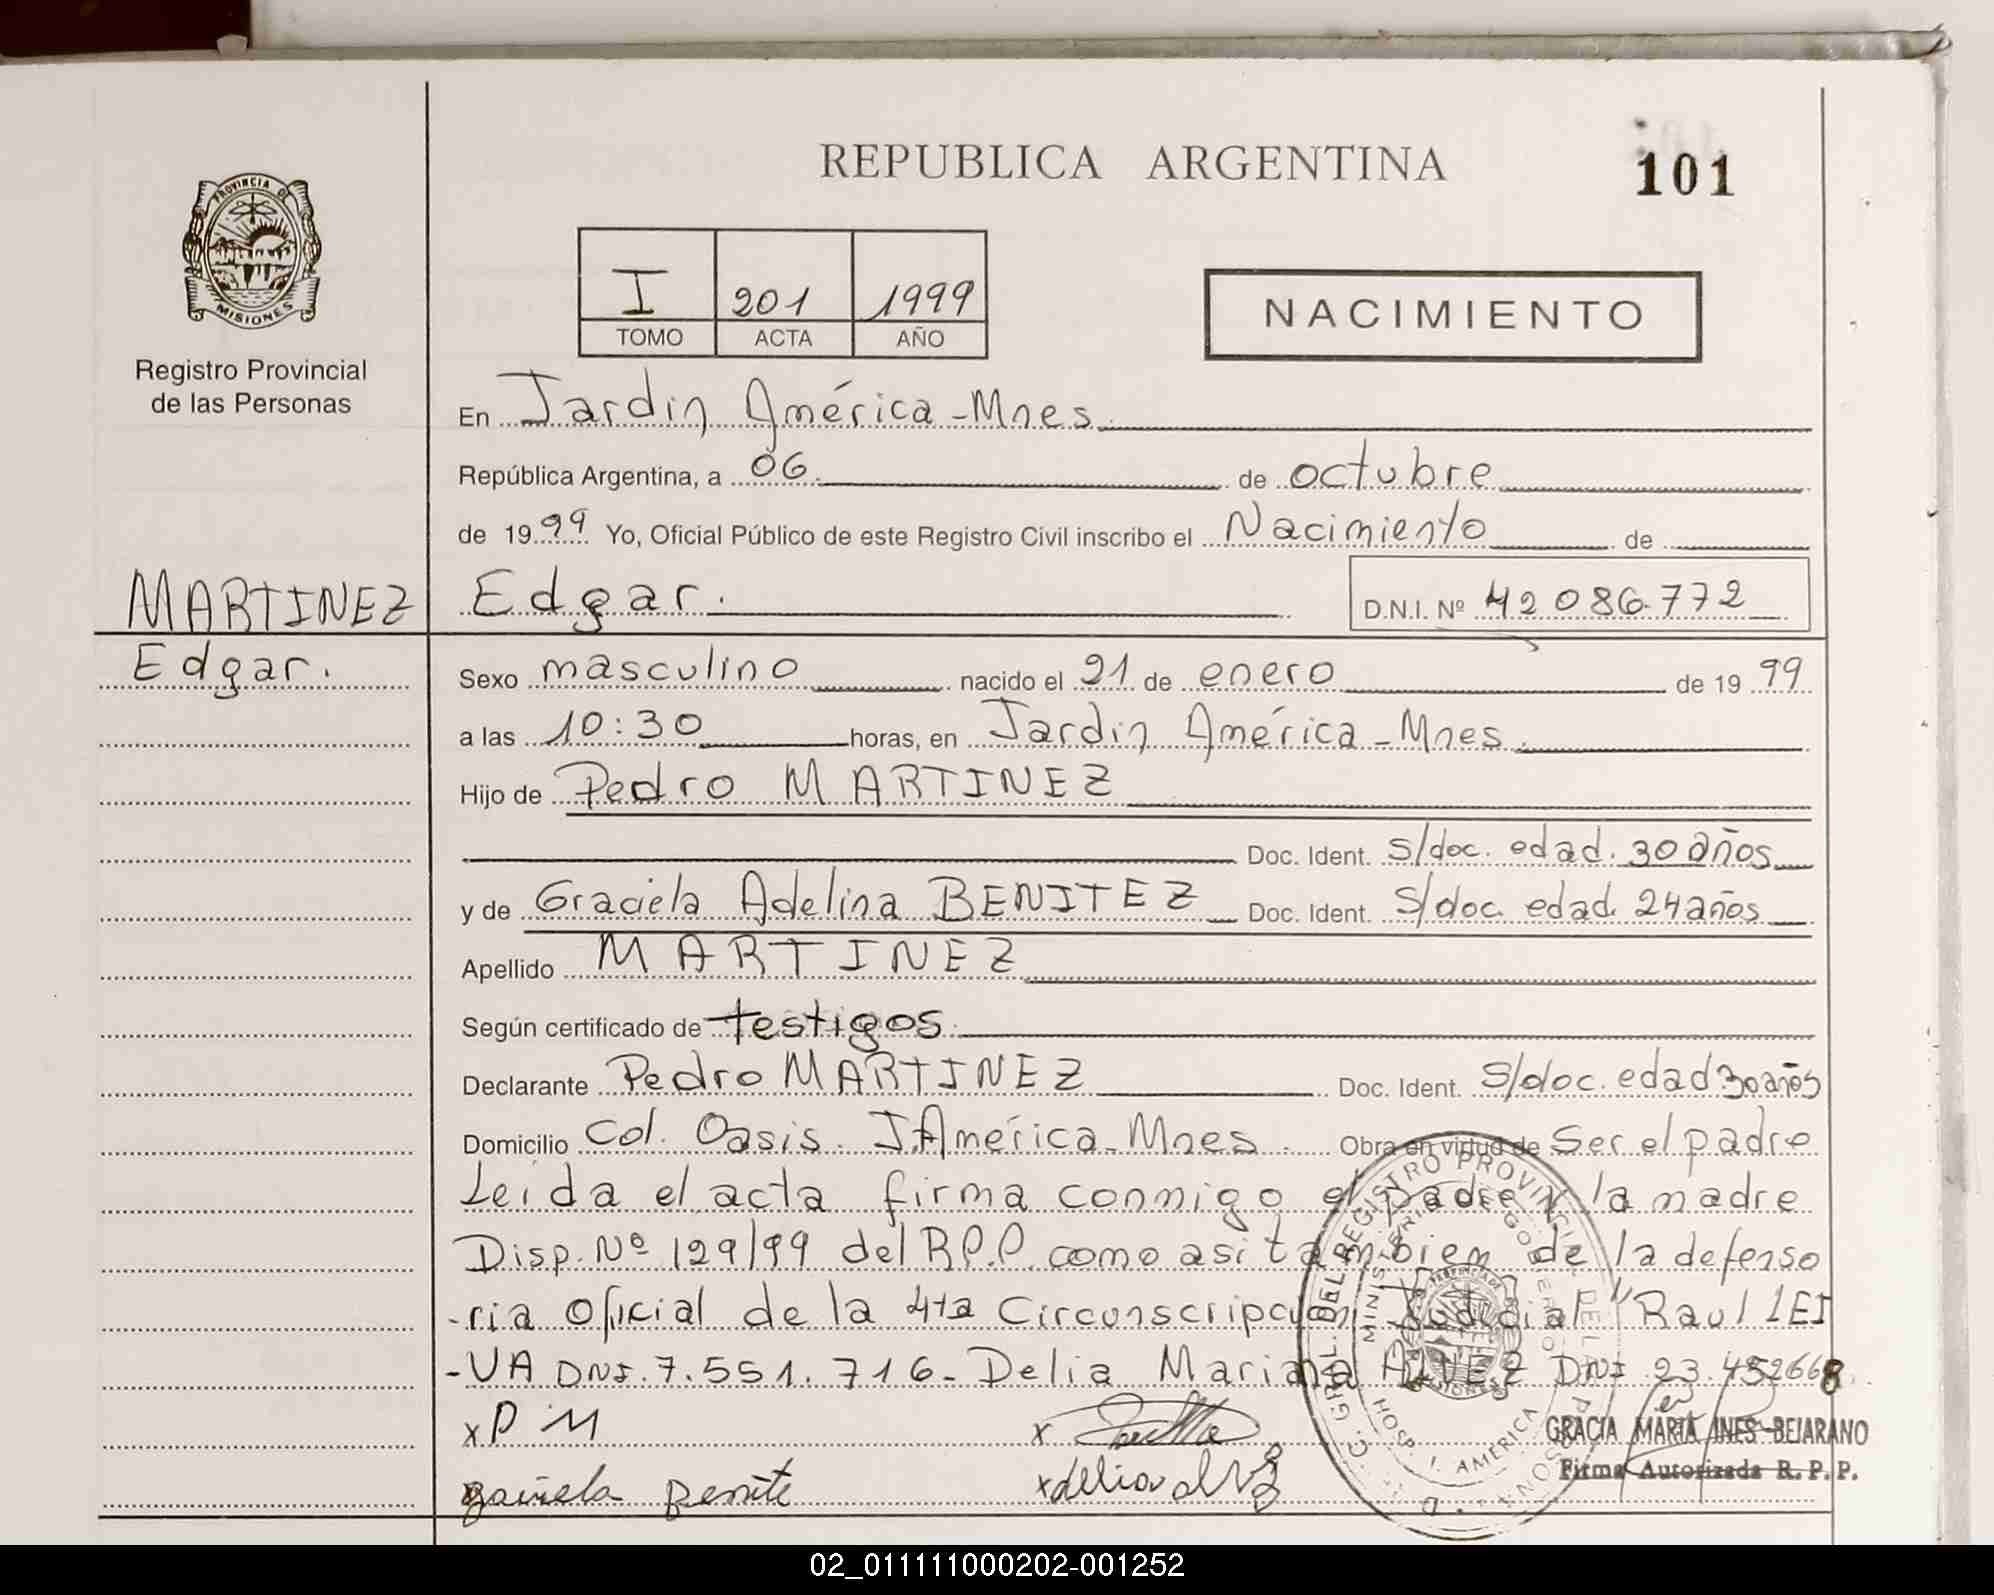 REPUBLICA ARGENTINA
101
PROVINCIA DE
MISIONES
Registro Provincial
de las Personas
I 201 1999
TOMO ACTA AÑO
NACIMIENTO
En Jardin América - Mnes.
República Argentina, a 06. de octubre
de 1999 Yo, Oficial Público de este Registro Civil inscribo el Nacimiento de
MARTINEZ Edgar. D.N.I. Nº 42 086.772
Edgar.
Sexo masculino nacido el 21 de enero de 1999
a las 10:30 horas, en Jardin América - Mnes.
Hijo de Pedro MARTINEZ
Doc. Ident. s/doc. edad. 30 años
y de Graciela Adelina BENITEZ Doc. Ident. s/doc. edad. 24 años
Apellido MARTINEZ
Según certificado de testigos.
Declarante Pedro MARTINEZ Doc. Ident. s/doc. edad 30 años
Domicilio Col. Oasis. J. América - Mnes. Obra en virtud de Ser el padre
Leida el acta firma conmigo el padre y la madre
Disp. Nº 129/99 del R.P.P. como asi tambien de la defenso
-ria oficial de la 4ta Circunscripcion Judicial "Raul LEI
-VA DNI. 7.551.716 - Delia Mariana ALVEZ DNI 23.452668.
x P M x
Benite x delia
GRACIA MARIA INES BEJARANO
Firma Autorizada R. P. P.
DEL REGISTRO PROVINCIAL DE
MINISTERIO DE GOBIERNO
HOSP. J. AMERICA
02_011111000202-001252